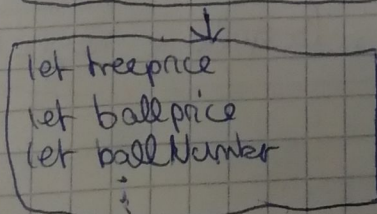 let treeprice
let ballprice
let ballNumber
: